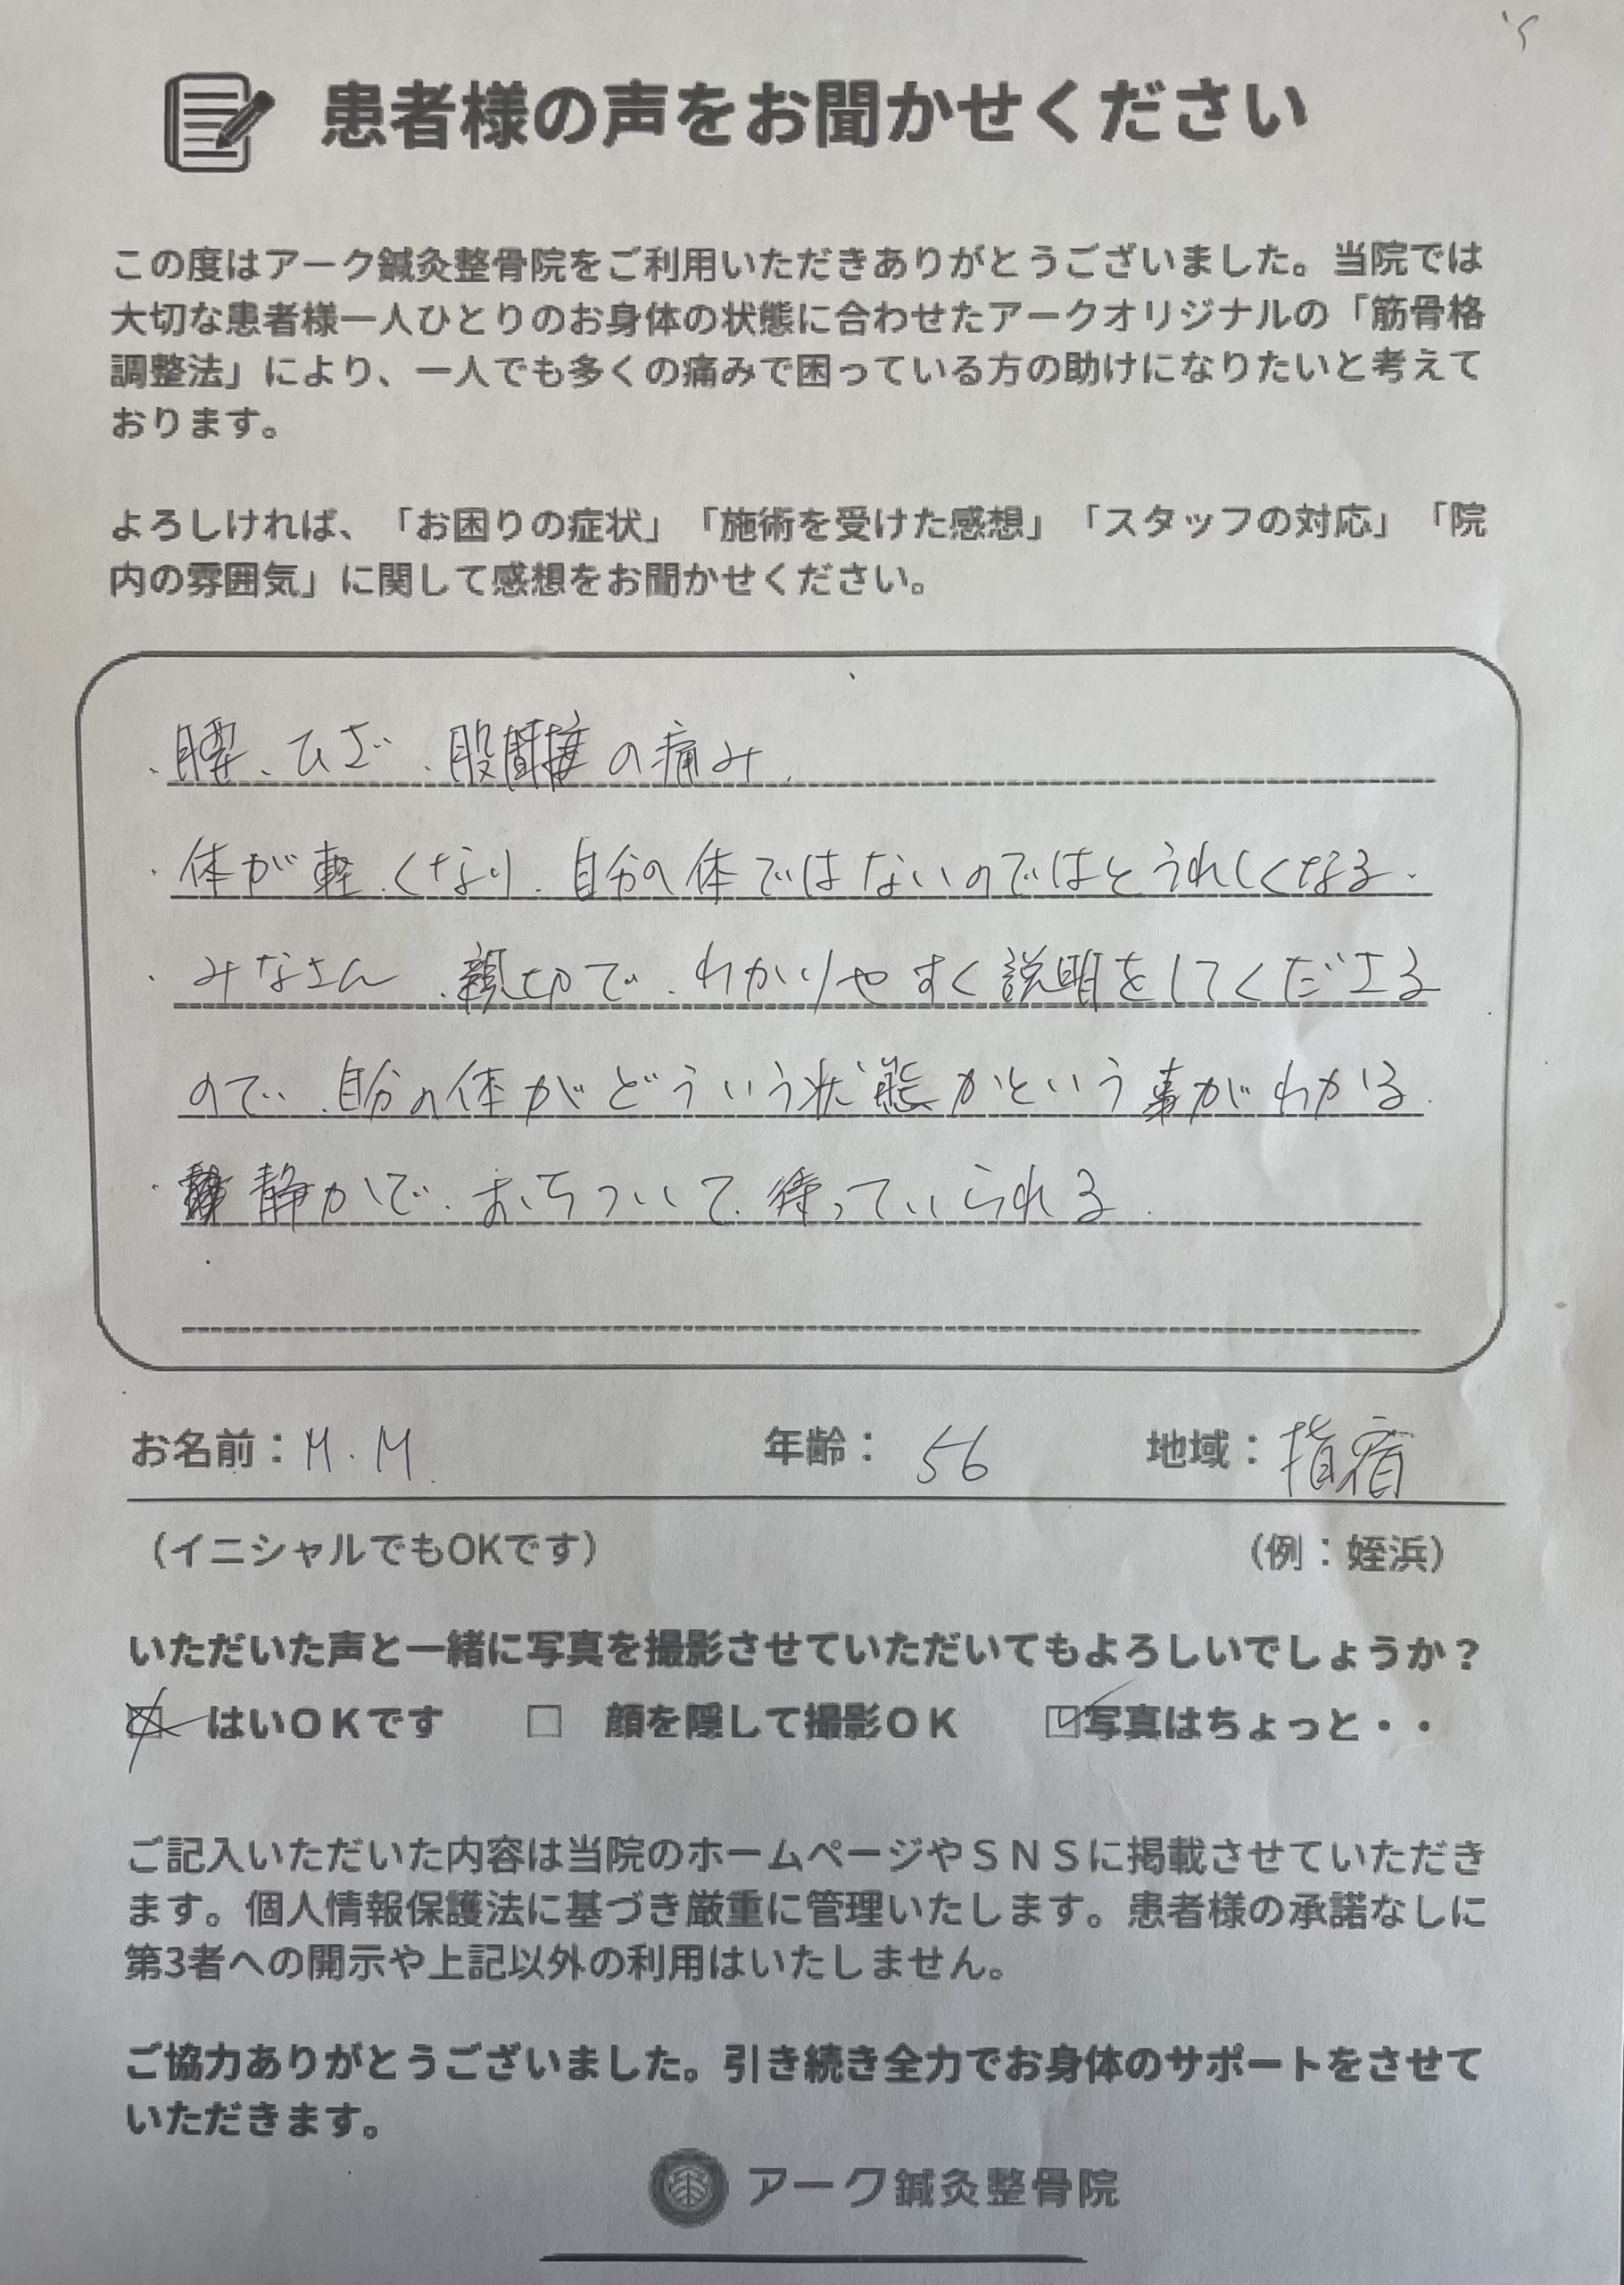 患者様の声をお聞かせください
この度はアーク鍼灸整骨院をご利用いただきありがとうございました。当院では
大切な患者様一人ひとりのお身体の状態に合わせたアークオリジナルの「筋骨格
調整法」により、一人でも多くの痛みで困っている方の助けになりたいと考えて
おります。
よろしければ、「お困りの症状」「施術を受けた感想」「スタッフの対応」「院
内の雰囲気」に関して感想をお聞かせください。
・腰、ひざ、股の痛み、
・体が軽くなり、自分の体ではないのではとうれしくなる。
・みなさん、親切で、わかりやすく説明をしてくださる
ので、自分の体がどういう状態かという事がわかる。
・静かで、おちついて、待っていられる。
お名前：M.M.
年齢： 56
地域：指宿
（イニシャルでもOKです）
（例：姪浜）
いただいた声と一緒に写真を撮影させていただいてもよろしいでしょうか？
はいＯＫです □ 顔を隠して撮影ＯＫ ☑写真はちょっと・・
ご記入いただいた内容は当院のホームページやＳＮＳに掲載させていただき
ます。個人情報保護法に基づき厳重に管理いたします。患者様の承諾なしに
第3者への開示や上記以外の利用はいたしません。
ご協力ありがとうございました。引き続き全力でお身体のサポートをさせて
いただきます。
アーク鍼灸整骨院